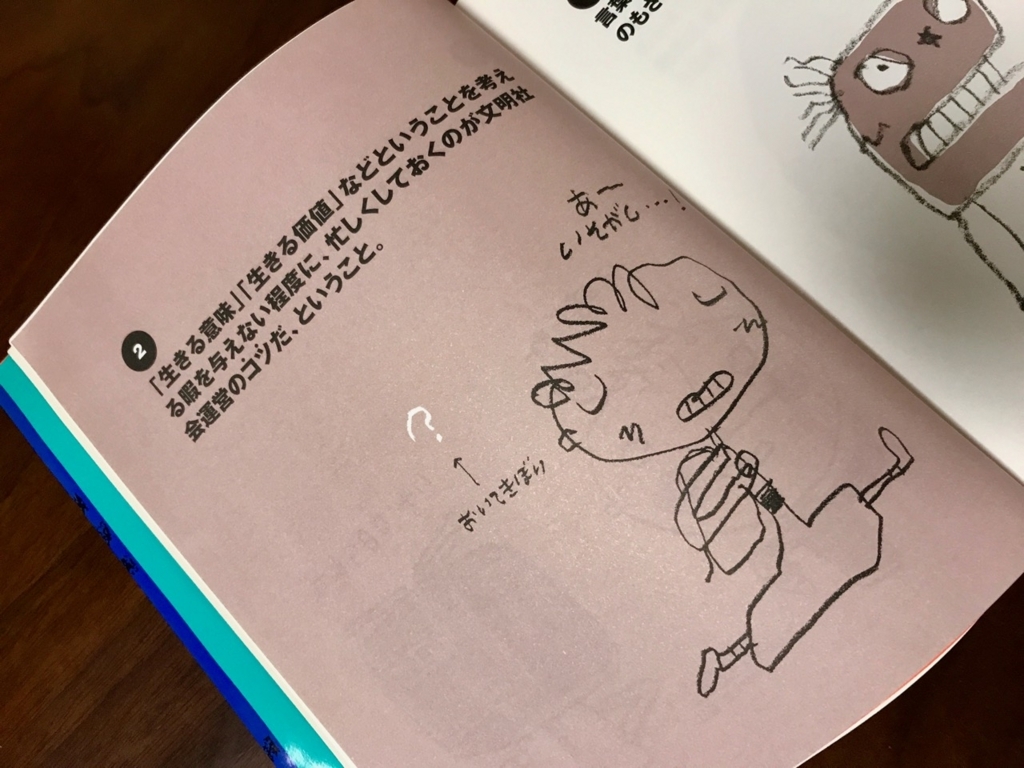 2
「生きる意味」「生きる価値」などということを考え
る暇を与えない程度に、忙しくしておくのが文明社
会運営のコツだ、ということ。
あー
いそがし…!
?
おいてきぼり
言葉
のもさ